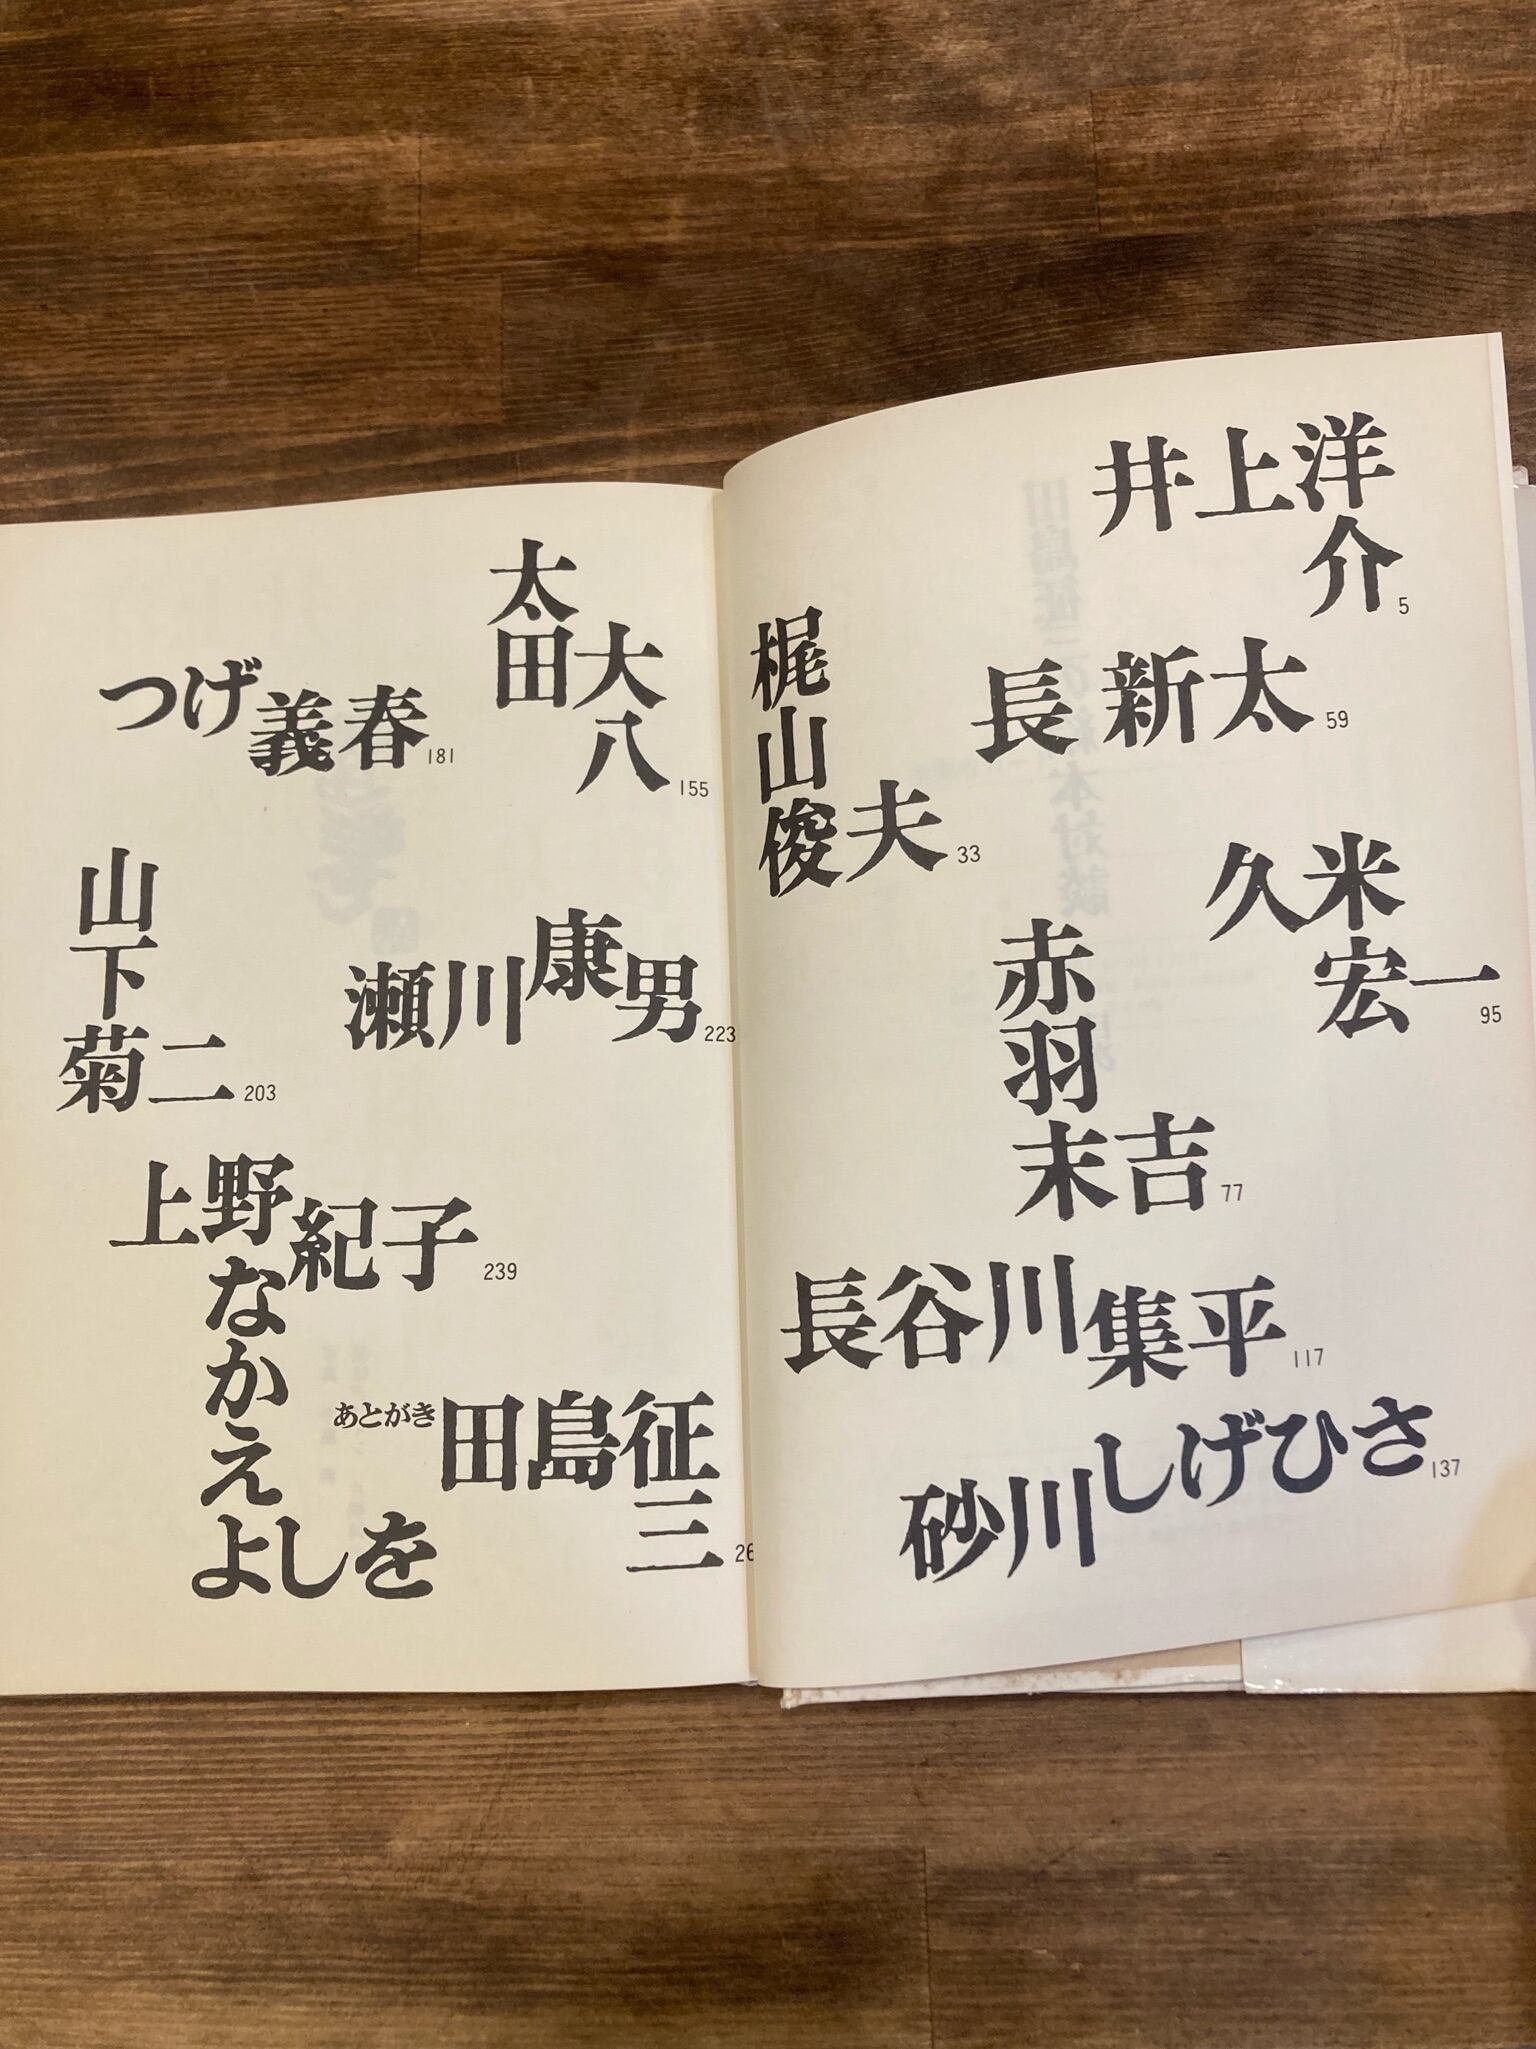 井上洋介 5
梶山俊夫 33
長新太 59
赤羽末吉 77
久米宏一 95
長谷川集平 117
砂川しげひさ 137
太田大八 155
つげ義春 181
山下菊二 203
瀬川康男 223
上野紀子
なかえよしを 239
あとがき 田島征三 26